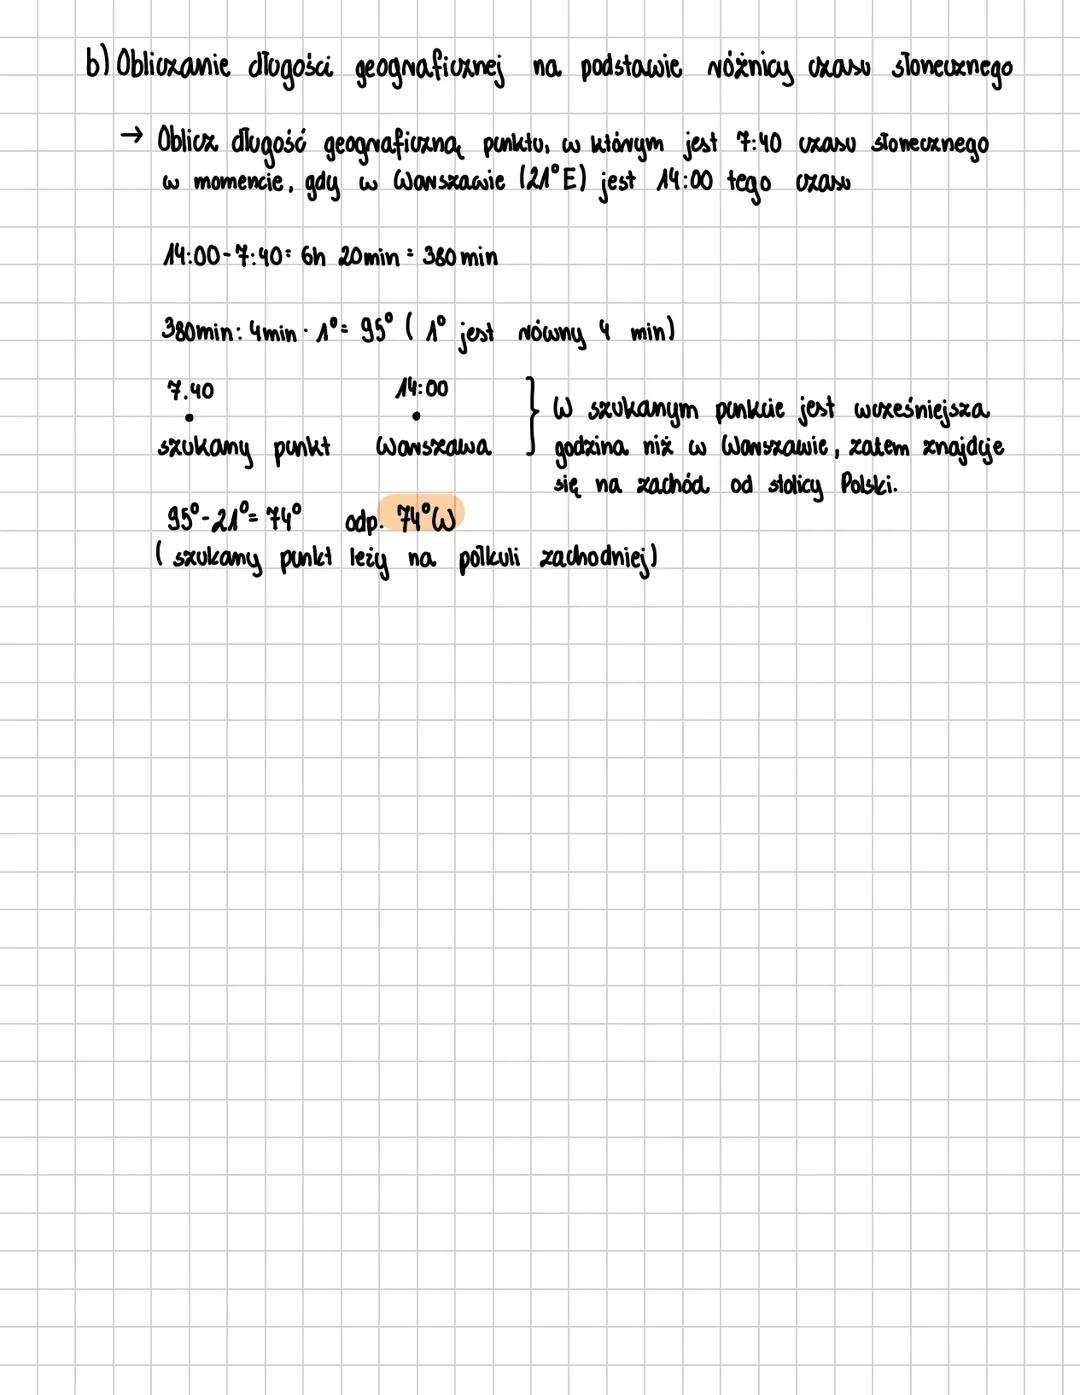 b) Obliczanie długości geograficznej na podstawie różnicy czasu słonecznego
→ Oblicz długość geograficzną punktu, w którym jest 7:40 czasu słonecznego
w momencie, gdy w Warszawie (21°E) jest 14:00 tego czasu
14:00-7:40= 6h 20min = 380min
380min: 4min · 1°= 95° ( 1° jest równy 4 min)
7.40 14:00
szukamy punkt Warszawa
} W szukanym punkcie jest wcześniejsza
godzina niż w Warszawie, zatem znajduje
się na zachód od stolicy Polski.
95°-21°= 74° odp. 74°W
( szukamy punkt leży na półkuli zachodniej)